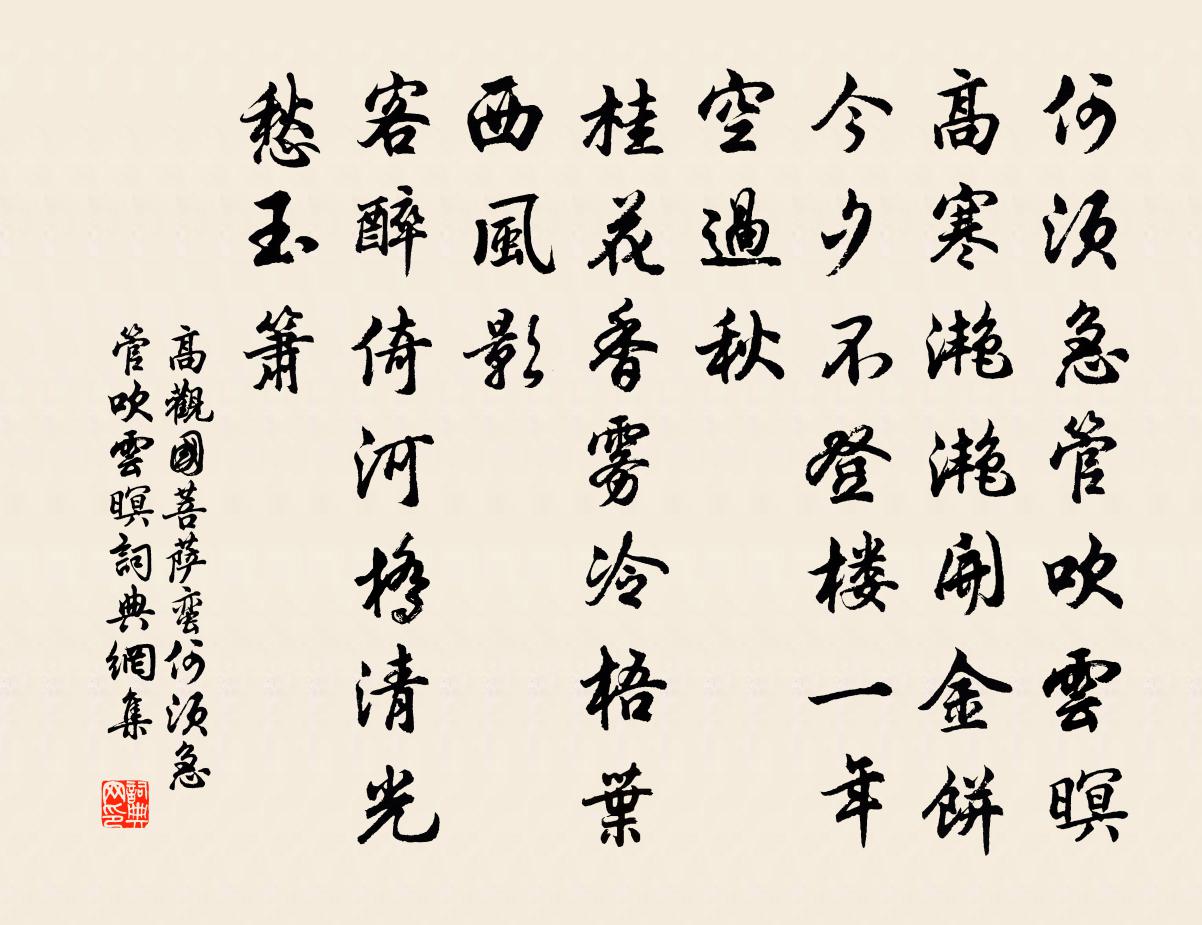 何須急管吹雲暝
高寒灧灧開金餅
今夕不登楼一年
空過秋
桂花香雾冷梧葉
西風影
客醉倚河橋清光
愁玉簫
高觀國菩薩蠻何須急
管吹雲暝詞典網集
詞典
网印